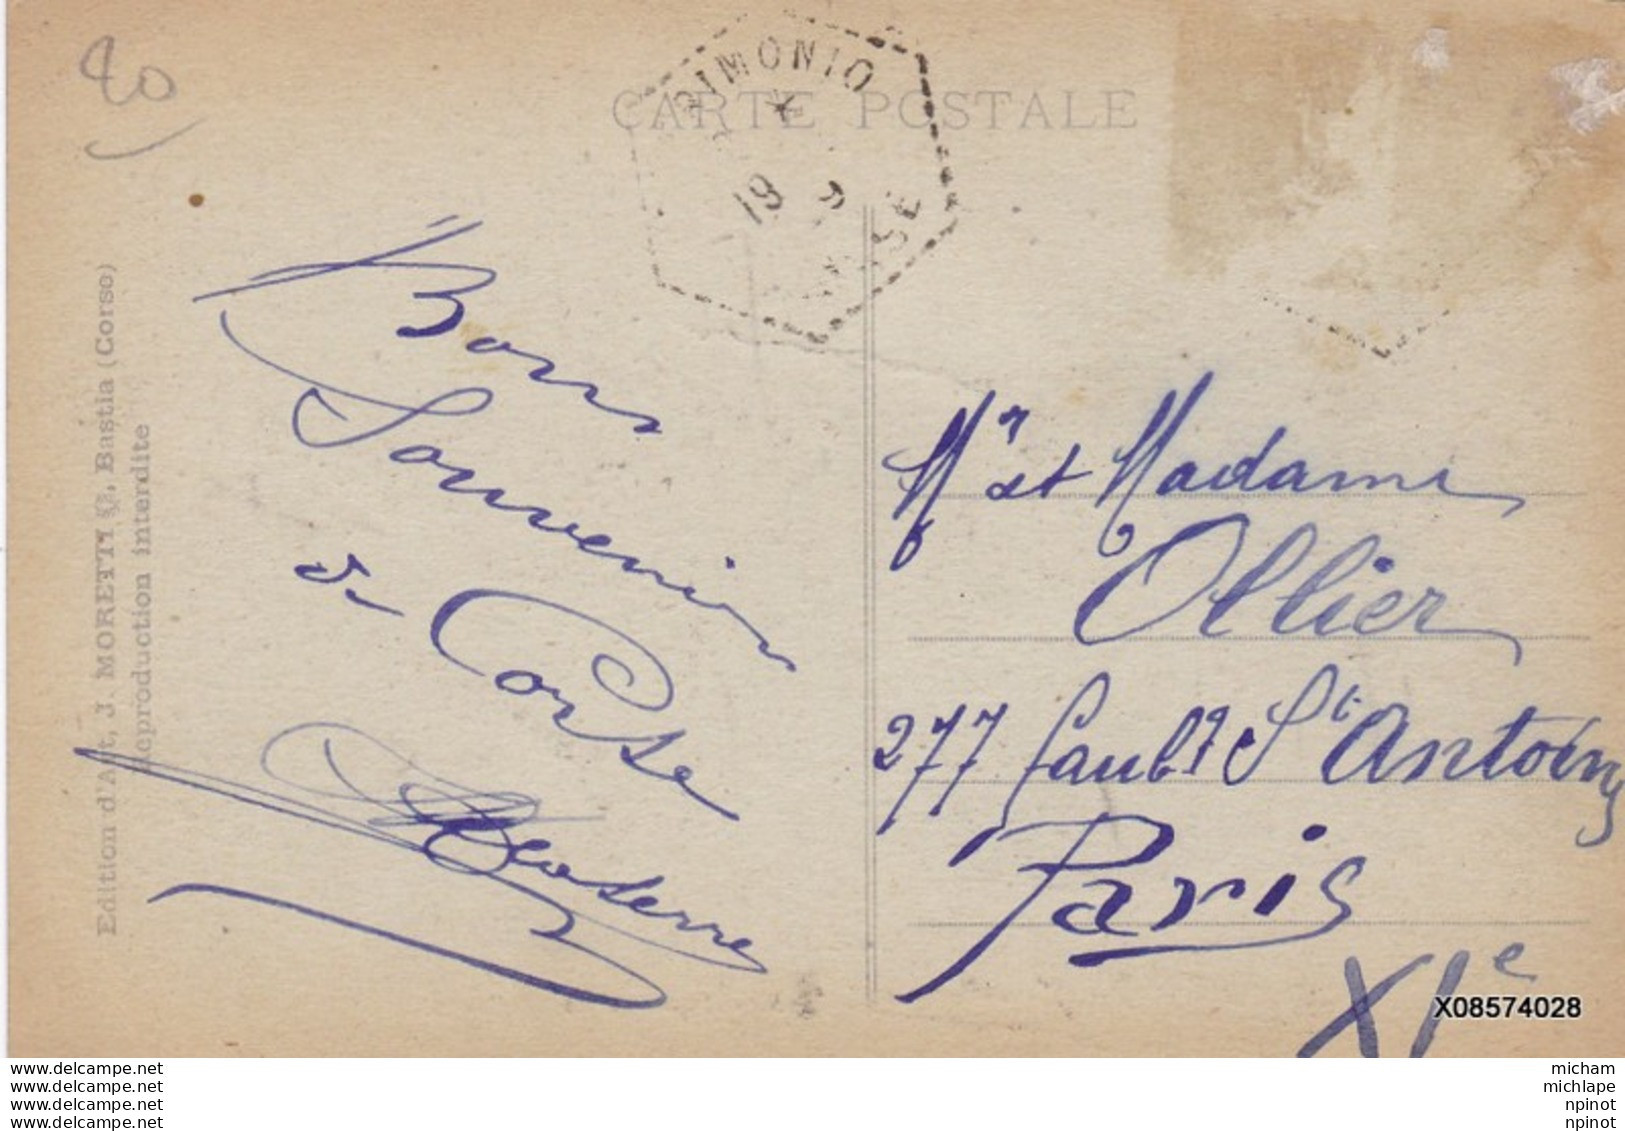 20
CARTE POSTALE
RIMONIO
19
Edition d'Art, J. MORETTI, Bastia (Corso)
Reproduction interdite
Bons
Souvenirs
de Corse
Mr et Madame
Ollier
277 Faubg St Antoine
Paris
XIe
X08574028
www.delcampe.net
www.delcampe.net
www.delcampe.net
www.delcampe.net
micham
michlape
npinot
npinot